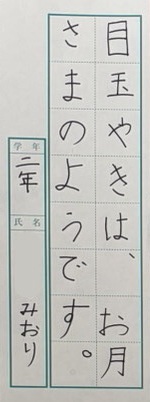 目玉やきは、お月
さまのようです。
学年
二年
氏名
みおり